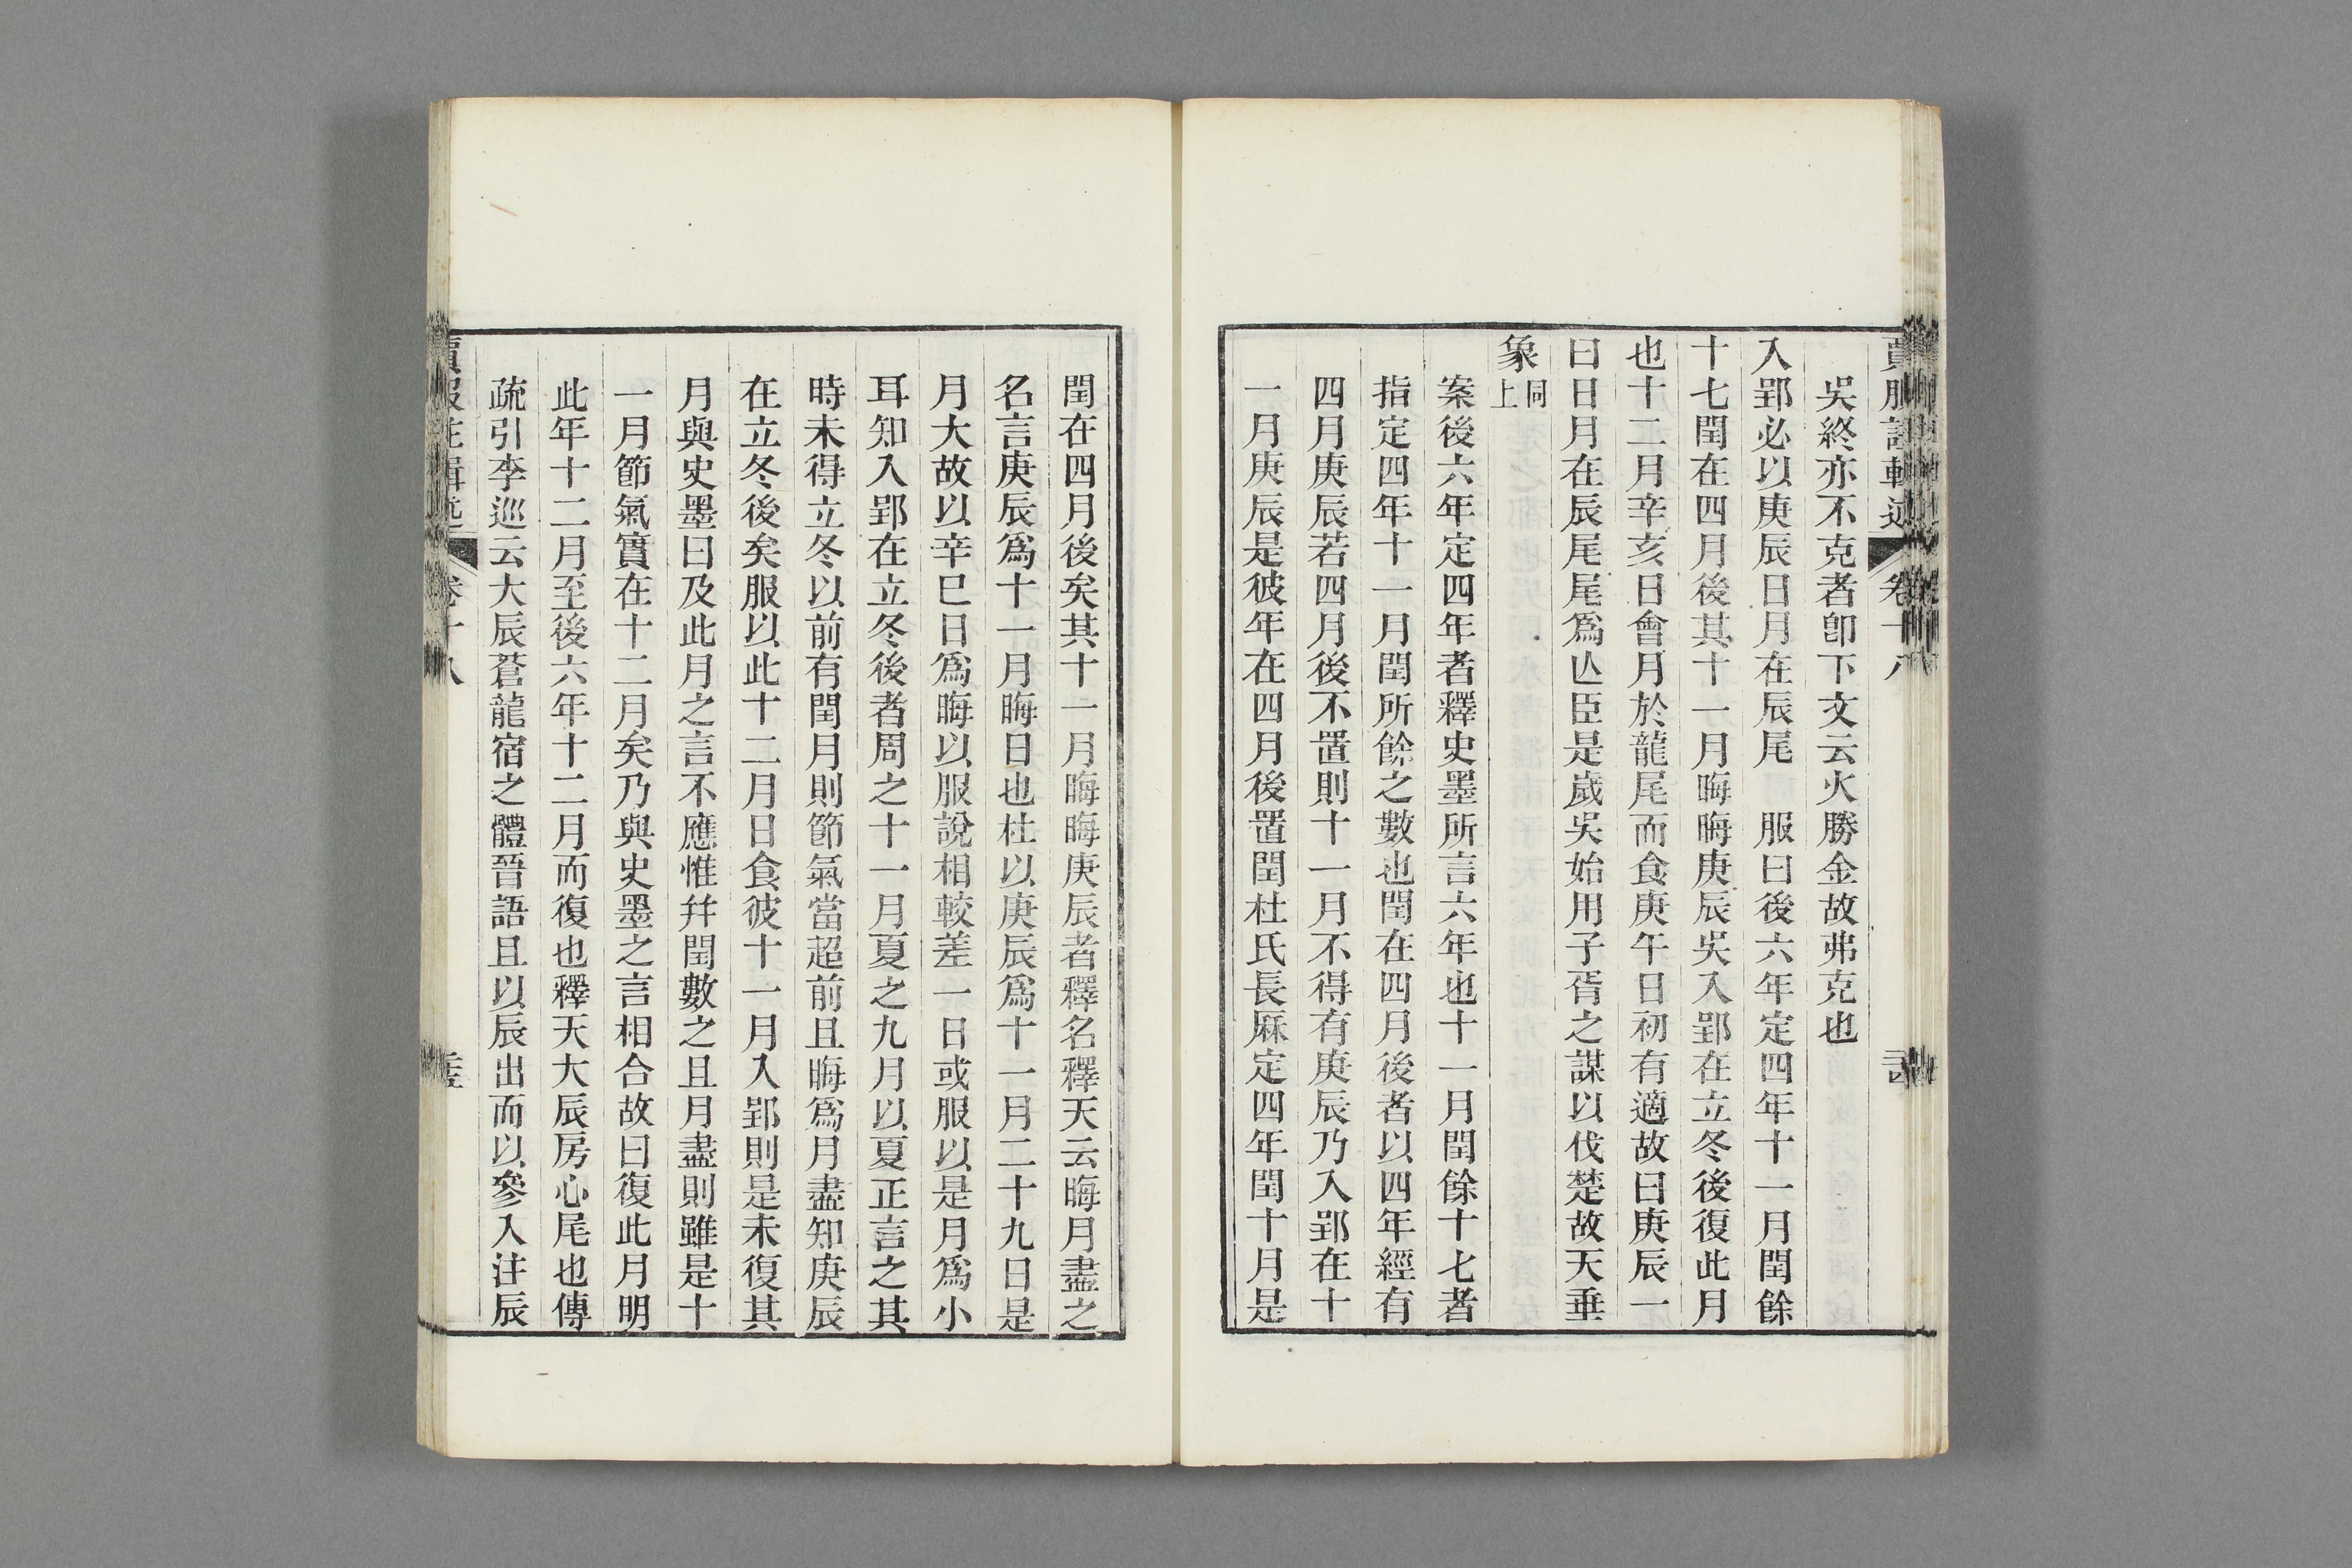 賈服注輯述 卷十八
吳終亦不克者卽下文云火勝金故弗克也
入郢必以庚辰日月在辰尾　服曰後六年定四年十一月閏餘
十七閏在四月後其十一月晦晦庚辰吳入郢在立冬後復此月
也十二月辛亥日會月於龍尾而食庚午日初有適故曰庚辰一
曰日月在辰尾尾爲亾臣是歲吳始用子胥之謀以伐楚故天垂
象同上
案後六年定四年者釋史墨所言六年也十一月閏餘十七者
指定四年十一月閏所餘之數也閏在四月後者以四年經有
四月庚辰若四月後不置則十一月不得有庚辰乃入郢在十
一月庚辰是彼年在四月後置閏杜氏長厤定四年閏十月是
閏在四月後矣其十一月晦晦庚辰者釋名釋天云晦月盡之
名言庚辰爲十一月晦日也杜以庚辰爲十一月二十九日是
月大故以辛巳日爲晦以服說相較差一日或服以是月爲小
耳知入郢在立冬後者周之十一月夏之九月以夏正言之其
時未得立冬以前有閏月則節氣當超前且晦爲月盡知庚辰
在立冬後矣服以此十二月日食彼十一月入郢則是未復其
月與史墨曰及此月之言不應惟幷閏數之且月盡則雖是十
一月節氣實在十二月矣乃與史墨之言相合故曰復此月明
此年十二月至後六年十二月而復也釋天大辰房心尾也傳
疏引李巡云大辰蒼龍宿之體晉語且以辰出而以參入注辰
賈服注輯述 卷十八